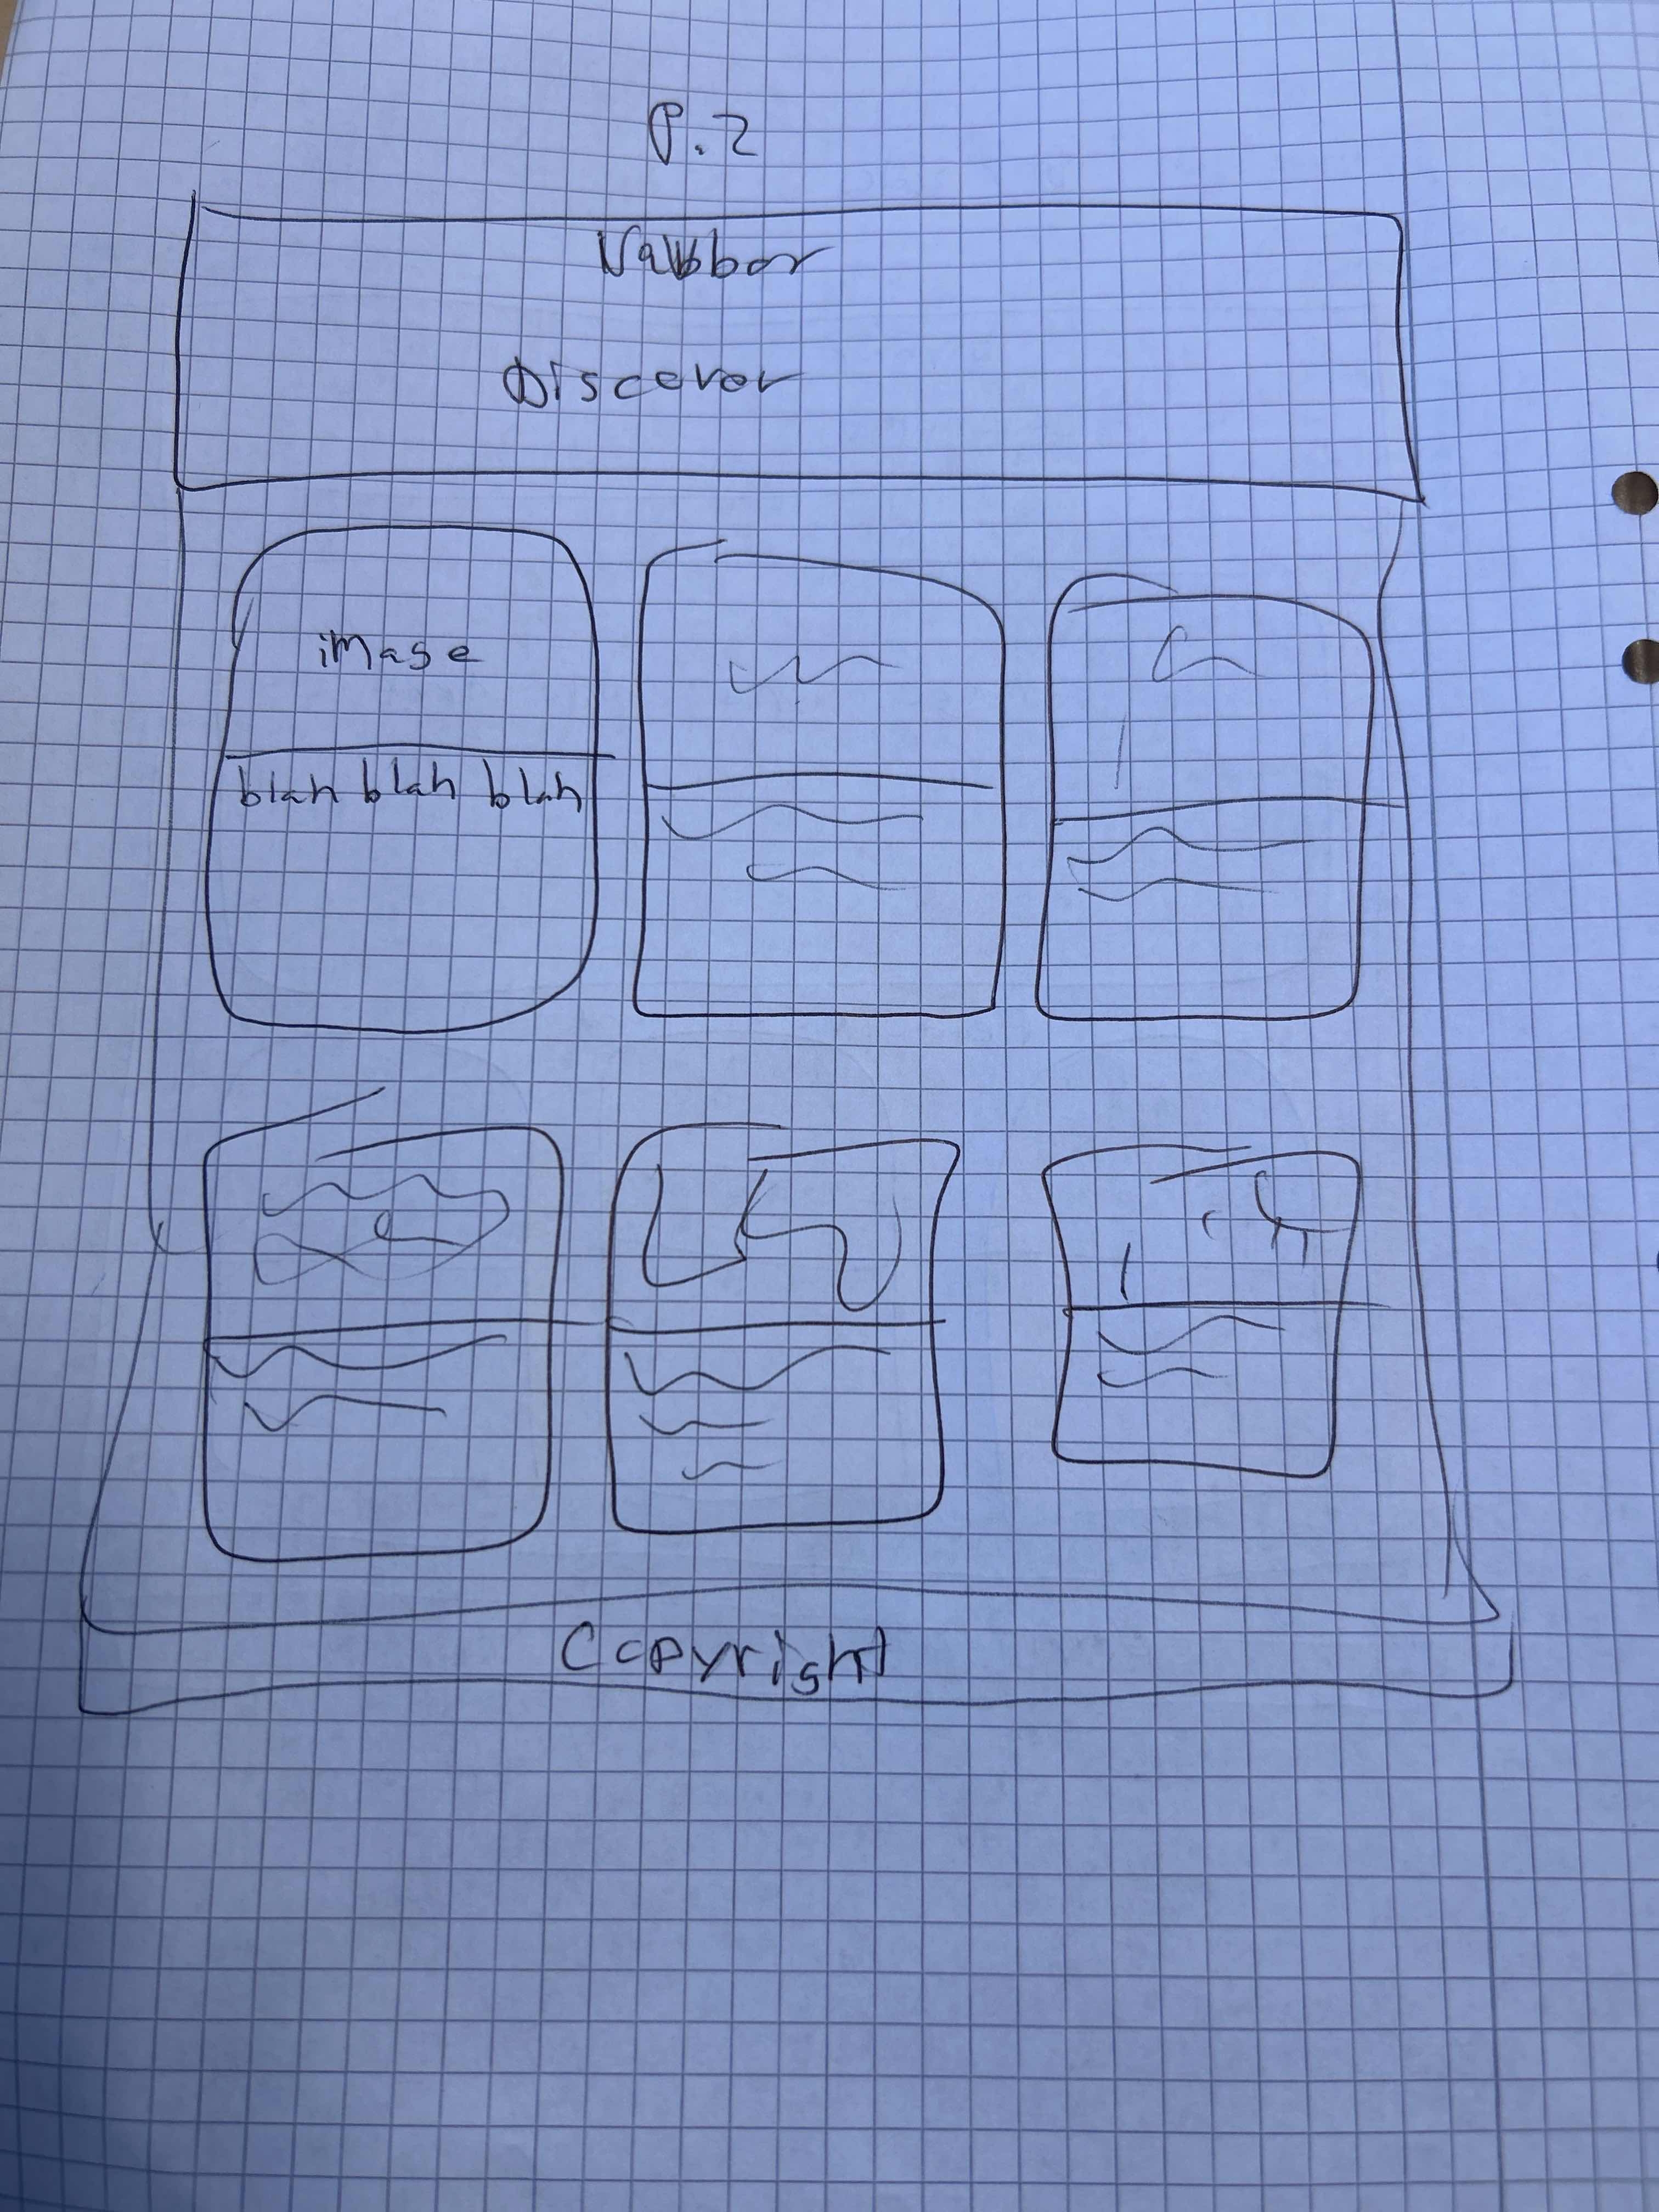 P.2
Navbar
Discover
image
blah blah blah
Copyright